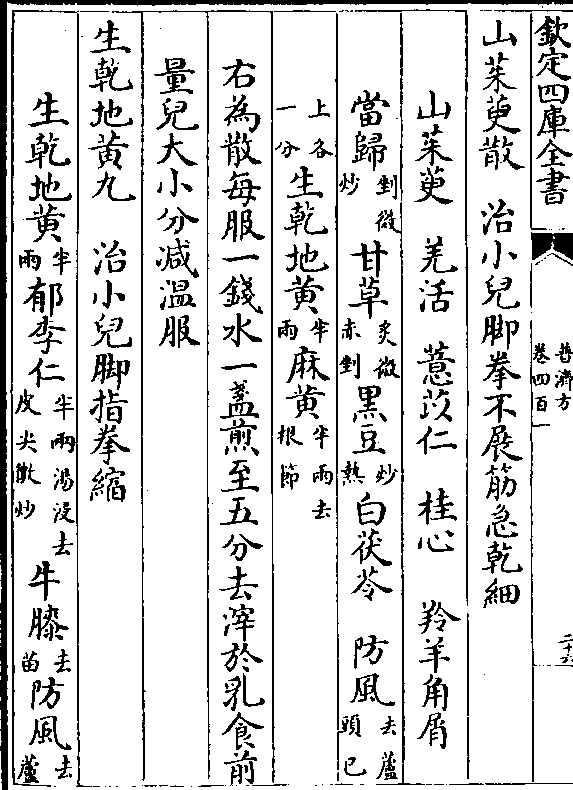 欽定四庫全書
普濟方
卷四百一
二十六
山茱萸散 治小兒脚拳不展筋急乾細
山茱萸 羌活 薏苡仁 桂心 羚羊角屑
當歸剉微炒 甘草炙微赤剉 黑豆炒熟 白茯苓 防風去蘆頭已
上各一分 生乾地黄半兩 麻黄半兩去根節
右為散每服一錢水一盞煎至五分去滓於乳食前
量兒大小分減温服
生乾地黄丸 治小兒脚指拳縮
生乾地黄半兩 郁李仁半兩湯浸去皮尖微炒 牛膝去苗 防風去蘆